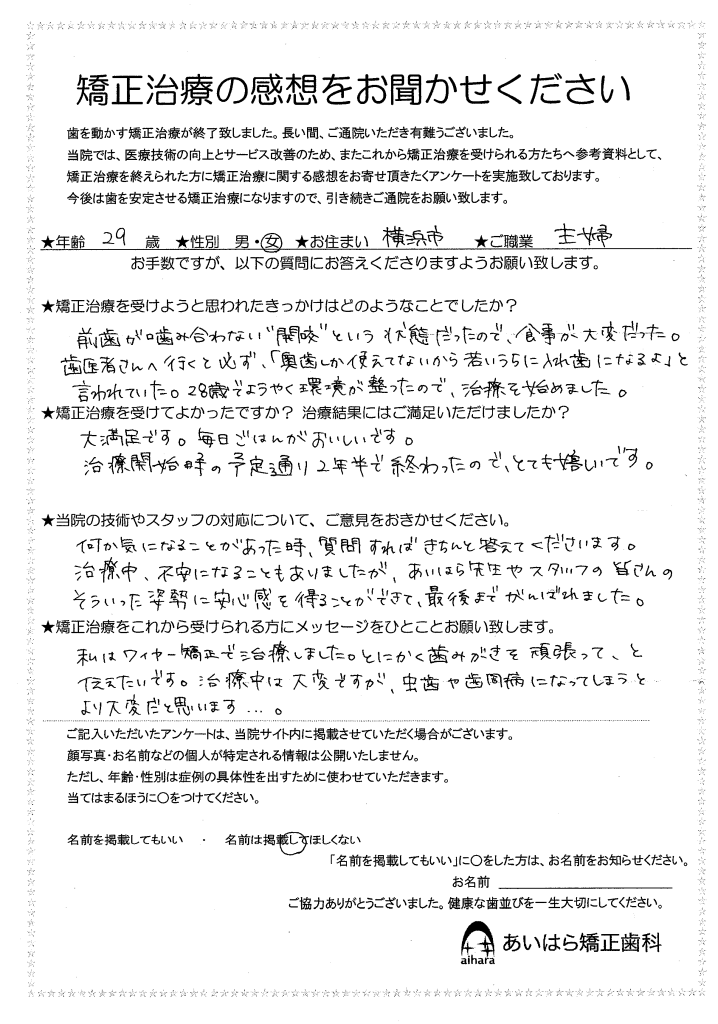 矯正治療の感想をお聞かせください
歯を動かす矯正治療が終了致しました。長い間、ご通院いただき有難うございました。
当院では、医療技術の向上とサービス改善のため、またこれから矯正治療を受けられる方たちへ参考資料として、
矯正治療を終えられた方に矯正治療に関する感想をお寄せ頂きたくアンケートを実施致しております。
今後は歯を安定させる矯正治療になりますので、引き続きご通院をお願い致します。
★年齢 29 歳 ★性別 男・女 ★お住まい 横浜市 ★ご職業 主婦
お手数ですが、以下の質問にお答えくださりますようお願い致します。
★矯正治療を受けようと思われたきっかけはどのようなことでしたか？
前歯が噛み合わない"開咬"という状態だったので、食事が大変だった。
歯医者さんへ行くと必ず、「奥歯しか使えてないから若いうちに入れ歯になるよ」と
言われていた。28歳でようやく環境が整ったので、治療を始めました。
★矯正治療を受けてよかったですか？ 治療結果にはご満足いただけましたか？
大満足です。毎日ごはんがおいしいです。
治療開始時の予定通り2年半で終わったので、とても嬉しいです。
★当院の技術やスタッフの対応について、ご意見をおきかせください。
何か気になることがあった時、質問すればきちんと答えてくださいます。
治療中、不安になることもありましたが、あいはら先生やスタッフの皆さんの
そういった姿勢に安心感を得ることができて、最後までがんばれました。
★矯正治療をこれから受けられる方にメッセージをひとことお願い致します。
私はワイヤー矯正で治療しました。とにかく歯みがきを頑張って、と
伝えたいです。治療中は大変ですが、虫歯や歯周病になってしまうと
より大変だと思います…。
ご記入いただいたアンケートは、当院サイト内に掲載させていただく場合がございます。
顔写真・お名前などの個人が特定される情報は公開いたしません。
ただし、年齢・性別は症例の具体性を出すために使わせていただきます。
当てはまるほうに○をつけてください。
名前を掲載してもいい ・ 名前は掲載してほしくない
「名前を掲載してもいい」に○をした方は、お名前をお知らせください。
お名前
ご協力ありがとうございました。健康な歯並びを一生大切にしてください。
aihara あいはら矯正歯科